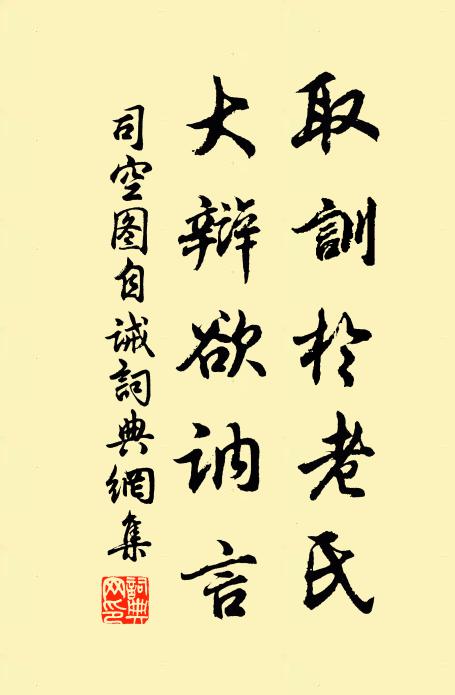 取訓於老氏
大辯欲訥言
司空图自诫詞典網集
詞典網印